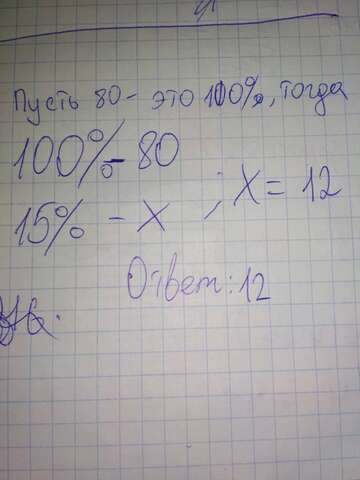 Пусть 80 - это 100%, тогда
100% - 80
15% - X ; X = 12
Ответ: 12